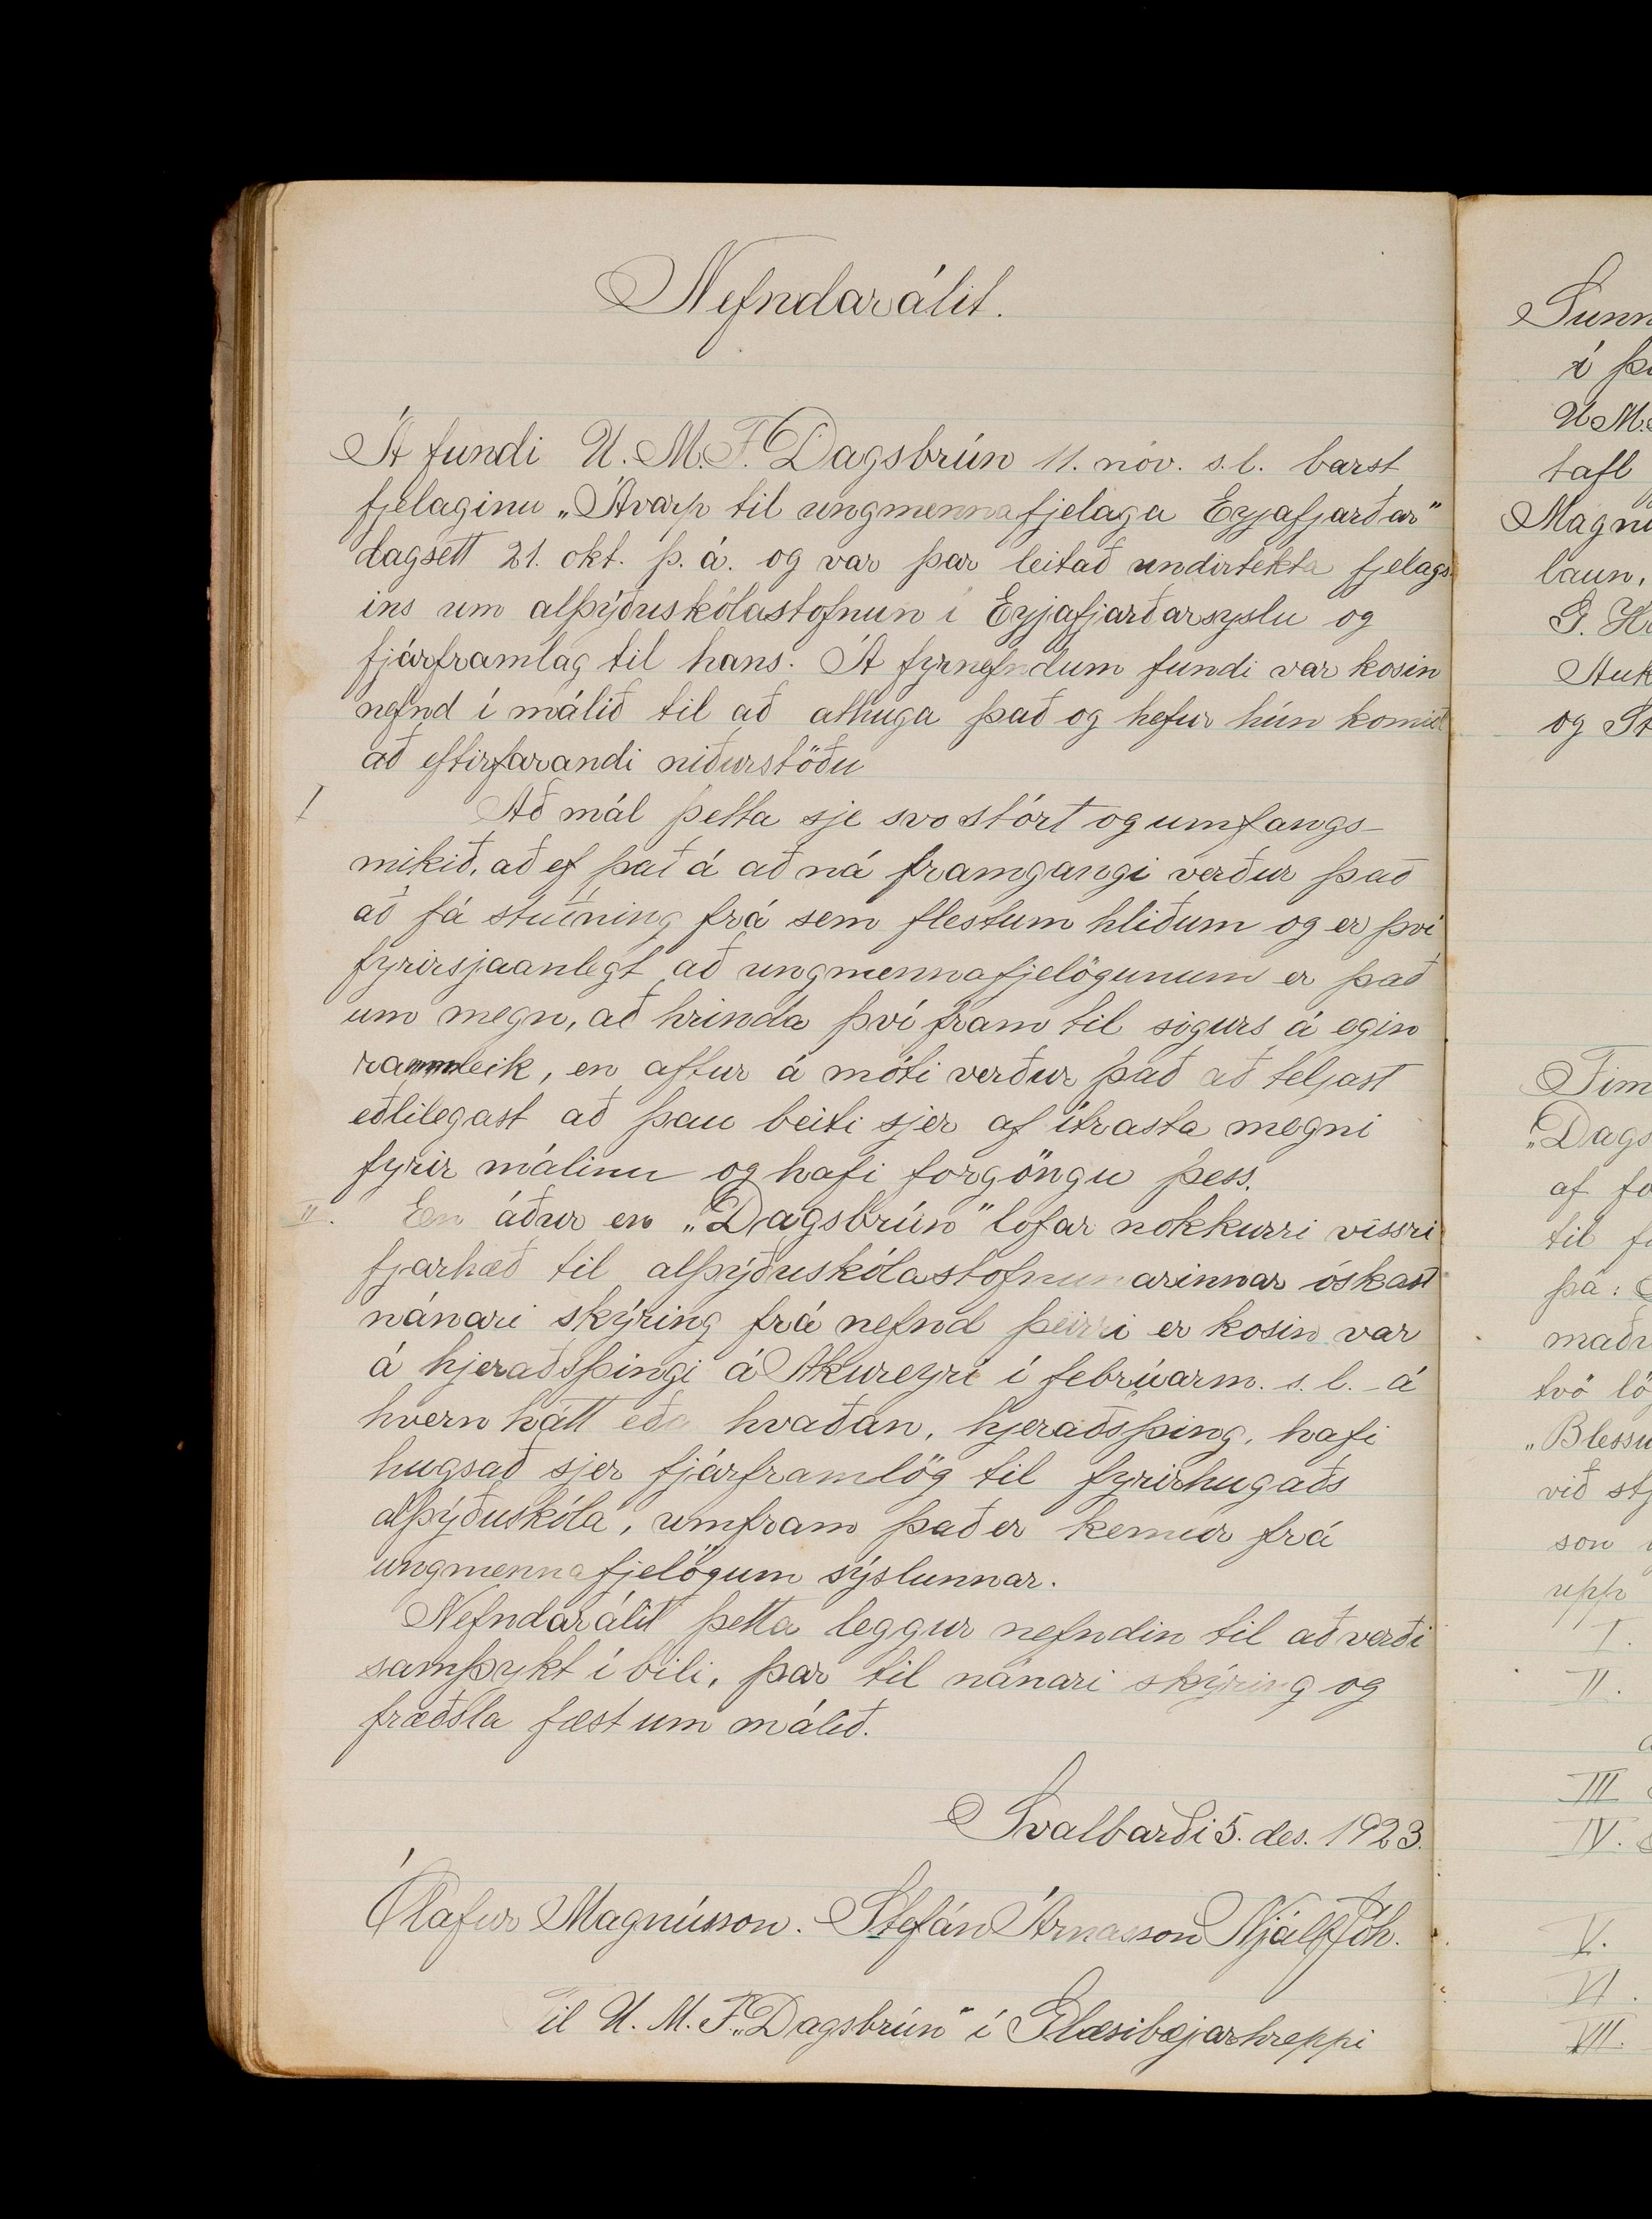 Nefndarálit.
Á fundi U.M.F. Dagsbrún 11. nóv. s.l. barst
fjelaginu „Ávarp til ungmennafjelaga Eyjafjarðar"
dagsett 21. okt. þ.á. og var þar leitað undirtekta fjelags-
ins um alþýðuskólastofnun í Eyjafjarðarsyslu og
fjárframlag til hans. Á fyrnefndum fundi var kosin
nefnd í málið til að athuga það og hefur hún komið
að eftirfarandi niðurstöðu
I Að mál þetta sje svo stórt og umfangs-
mikið, að ef það á að ná framgangi verður það
að fá stuðning frá sem flestum hliðum og er því
fyrirsjaanlegt að ungmennafjelögunum er það
um megn, að hrinda því fram til sigurs á egin
rammleik, en aftur á móti verður það að teljast
eðlilegast að þau beiti sjer af ítrasta megni
fyrir málinu og hafi forgöngu þess.
II. En áður en „Dagsbrún" lofar nokkurri vissri
fjarhæð til alþýðuskólastofnunarinnar óskast
nánari skýring frá nefnd þeirri er kosin var
á hjeraðsþingi á Akureyri í febrúarm. s.l. - á
hvern hátt eða hvaðan, hjeraðsþing, hafi
hugsað sjer fjárframlög til fyrirhugaðs
alþýðuskóla, umfram það er kemur frá
ungmennafjelögum sýslunnar.
Nefndarálit þetta leggur nefndin til að verði
samþykt í bili, þar til nánari skýring og
fræðsla fæst um málið.
Svalbarði 5. des. 1923.
Ólafur Magnússon. Stefán Árnasson Njáll Jóh.
Til U.M.F. „Dagsbrún" í Glæsibæjarhreppi
Sunn
í þ
U M.
tafl
Magnú
laun,
G. H
Auk
og St
Tím
„Dags
af fo
til f
þá:
maðu
tvö lö
„Blessu
við stj
son
upp
I.
II.
III
IV.
V.
VI.
VII.